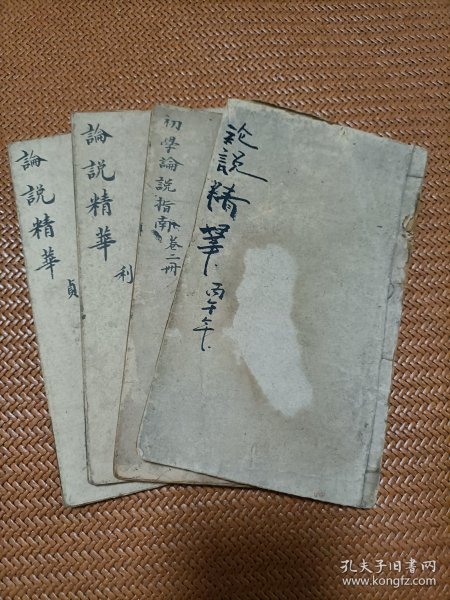 論説精華
貞
論説精華
利
初學論説指南卷二冊
论説精華
丙午年
孔夫子旧书网
www.kongfz.com